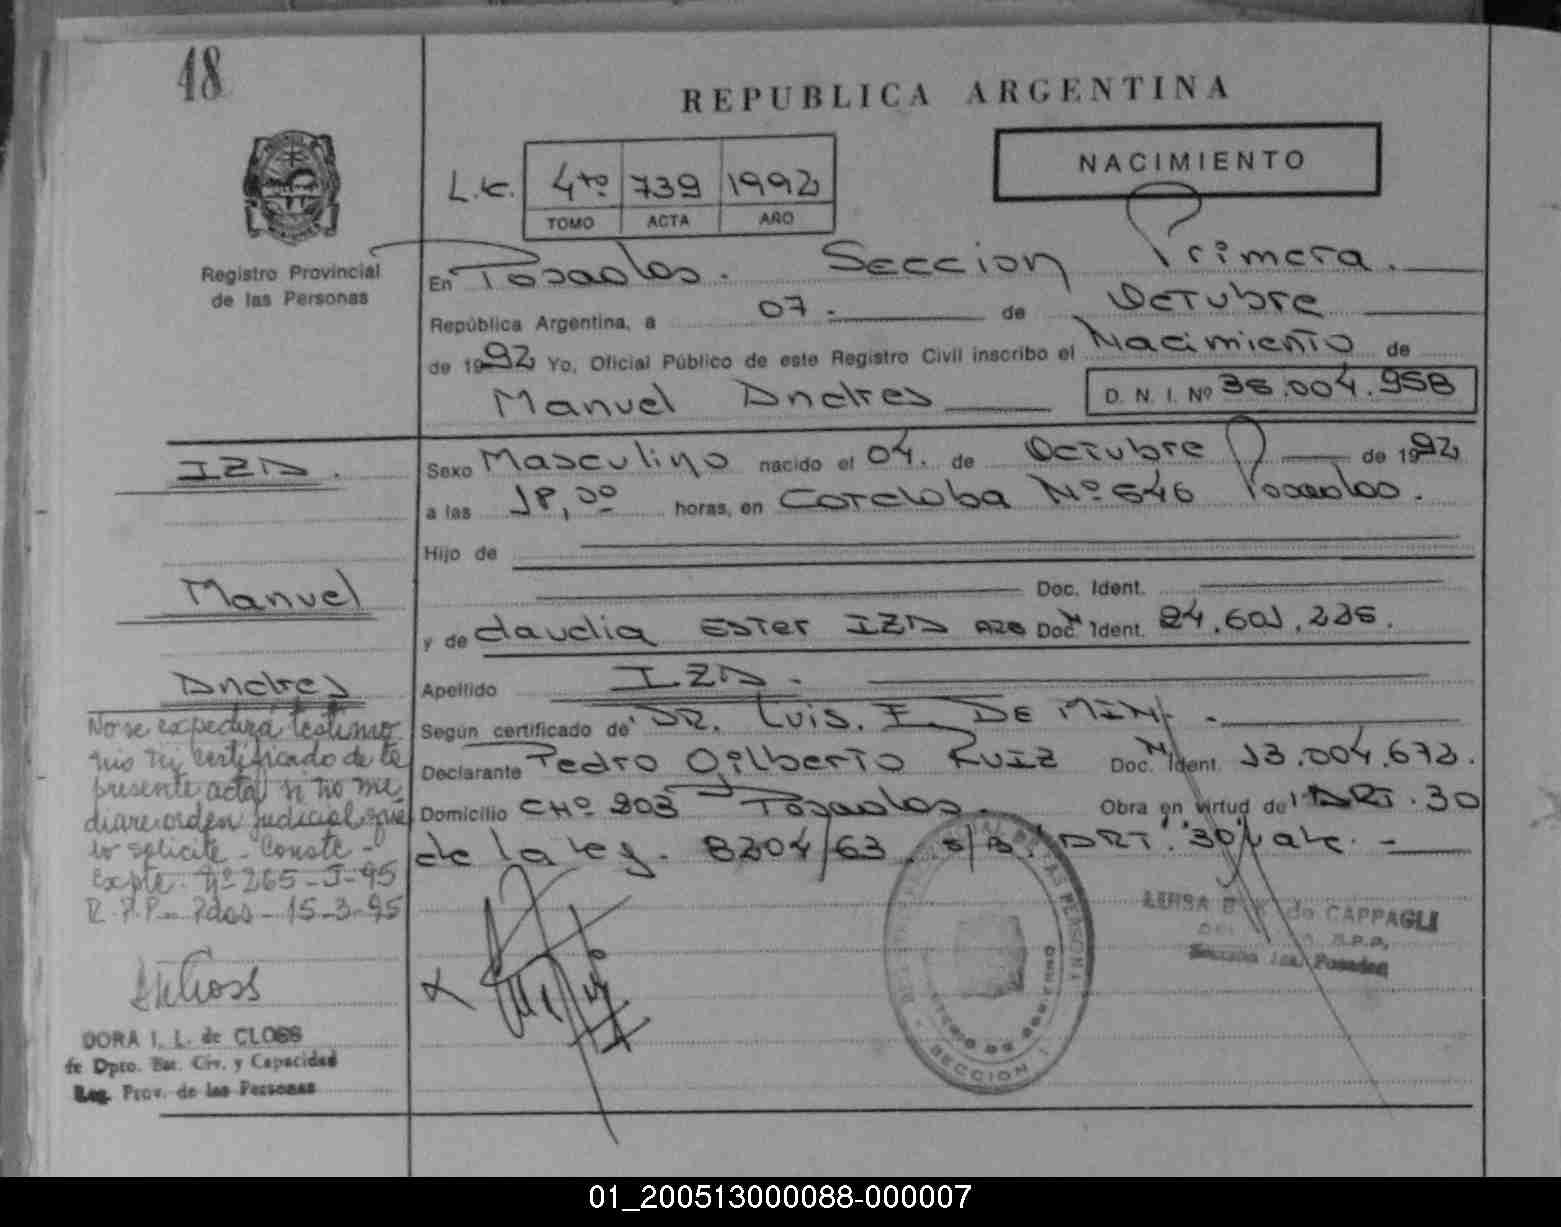 48
REPUBLICA ARGENTINA
NACIMIENTO
L.C. 4to 739 1992
TOMO ACTA AÑO
Registro Provincial
de las Personas
En Posadas. Seccion Primera.
República Argentina, a 07. de Octubre
de 1992 Yo, Oficial Público de este Registro Civil inscribo el Nacimiento de
Manuel Andres D. N. I. Nº 36.004.958
IZA.
Sexo Masculino nacido el 04. de Octubre de 1992
a las 18,00 horas, en Cordoba Nº 646 Posadas.
Hijo de
Manuel
Doc. Ident.
y de Claudia Ester IZA Doc. Ident. 24.601.236.
Andres
Apellido IZA.
Según certificado de DR. Luis. F. DE
Declarante Pedro Gilberto Ruiz Doc. Ident. 13.004.673.
Domicilio CHº 203 Posadas. Obra en virtud del ART. 30
de la ley. 8204/63. S/B. ART. 30 vale.-
No se expedirá testimo
nio ni certificado de la
presente acta si no me
diare orden judicial que
lo solicite - Conste -
Expte. Nº 265-J-95
R.P.P. - Pdas - 15-3-95
DORA I. L. de CLOSS
fe Dpto. Est. Civ. y Capacidad
Reg. Prov. de las Personas
de CAPPAGLI
R.P.P.
Sección 1ra. Posadas
SECCION 1
01_200513000088-000007